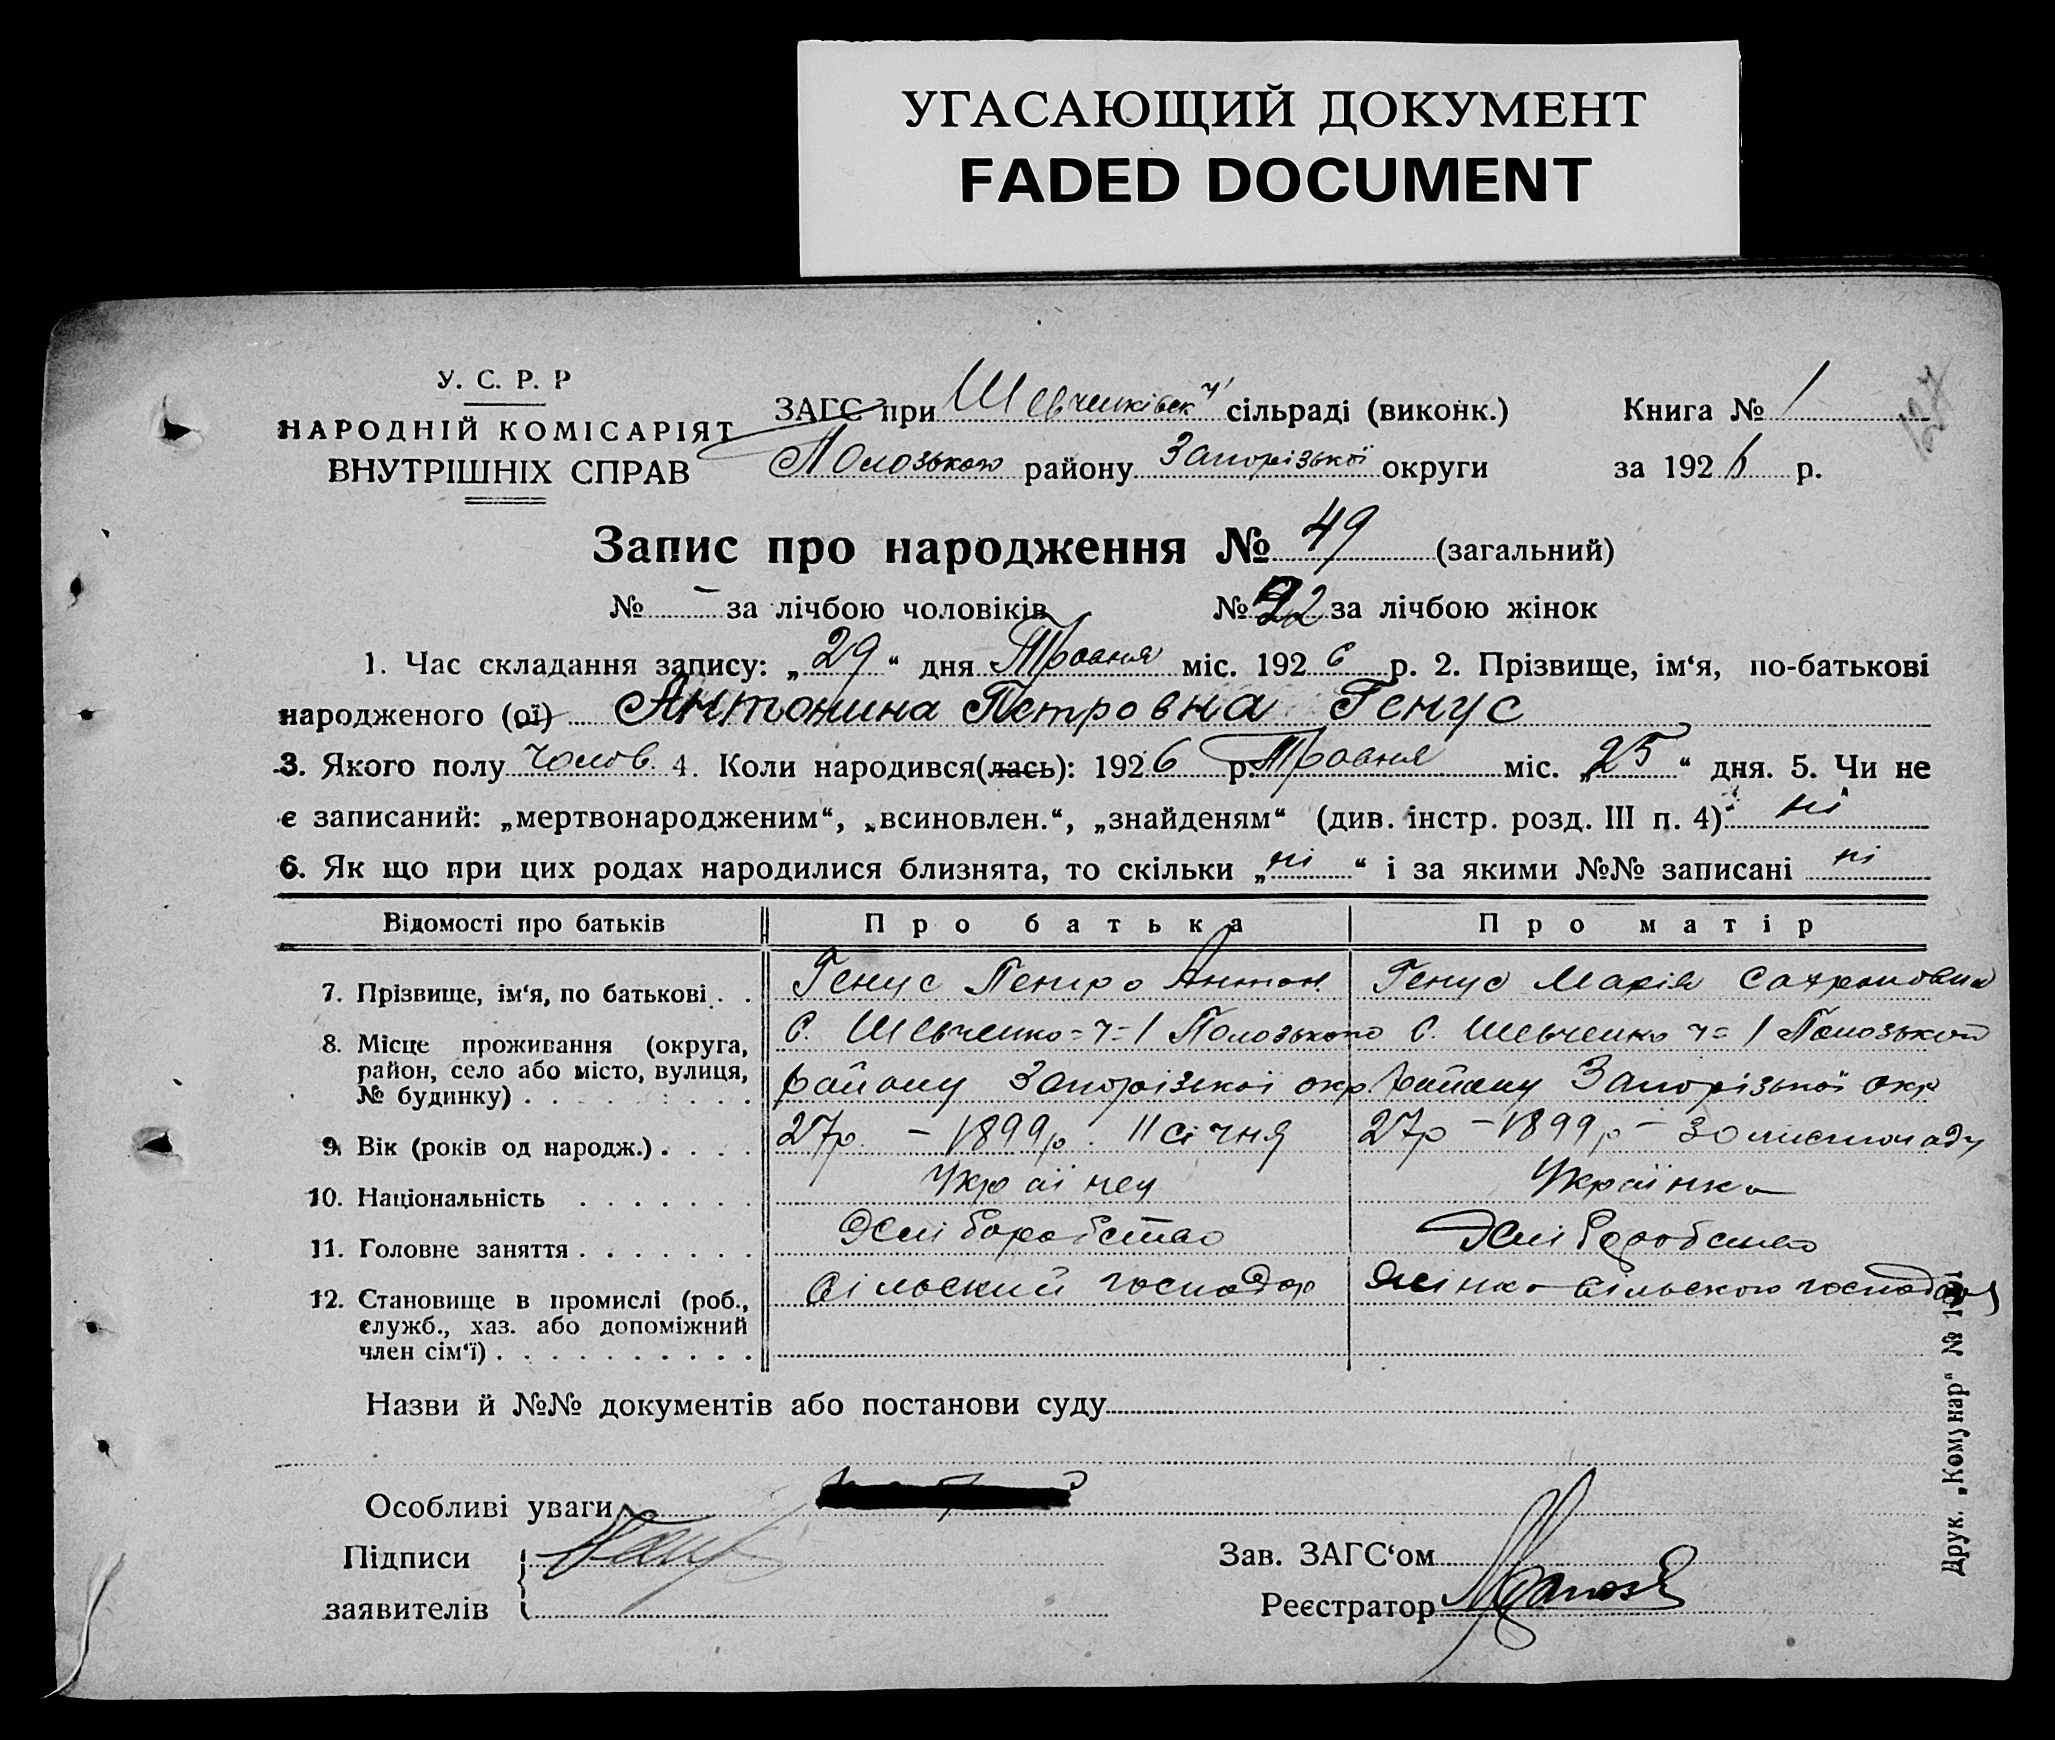 УГАСАЮЩИЙ ДОКУМЕНТ
FADED DOCUMENT
У. С. Р. Р
НАРОДНІЙ КОМІСАРІЯТ
ВНУТРІШНІХ СПРАВ
ЗАГС при Шевченківськ ч1 сільраді (виконк.)
Полозького району Запорізької округи
Книга № 1
за 1926 р.
127
Запис про народження № 49 (загальний)
№ – за лічбою чоловіків № 22 за лічбою жінок
1. Час складання запису: „29“ дня Травня міс. 1926 р. 2. Прізвище, ім‘я, по-батькові
народженого (ої) Антонина Петровна Генус
3. Якого полу чолов. 4. Коли народився(лась): 1926 р. Травня міс. „25“ дня. 5. Чи не
є записаний: „мертвонародженим“, „всиновлен.“, „знайденям“ (див. інстр. розд. III п. 4) ні
6. Як що при цих родах народилися близнята, то скільки „ні“ і за якими №№ записані ні
Відомості про батьків Про батька Про матір
7. Прізвище, ім‘я, по батькові . . Генус Петро Антон. Генус Марія Сафроновна
8. Місце проживання (округа, район, село або місто, вулиця, № будинку) . . . с. Шевченко=ч=1 Полозького району Запорізької окр. с. Шевченко ч=1 Полозького району Запорізької окр
9. Вік (років од народж.) . . . . 27р. – 1899р. 11 січня 27р – 1899р – 30 листопаду
10. Національність . . . . . . . Українец Українка
11. Головне заняття . . . . . . . Хліборобство Хліборобство
12. Становище в промислі (роб., служб., хаз. або допоміжний член сім‘ї) . . . сільский господар жінка сільского господаря
Назви й №№ документів або постанови суду
Особливі уваги
Підписи
заявителів
Зав. ЗАГС‘ом
Реєстратор
Друк. „Комунар“ №